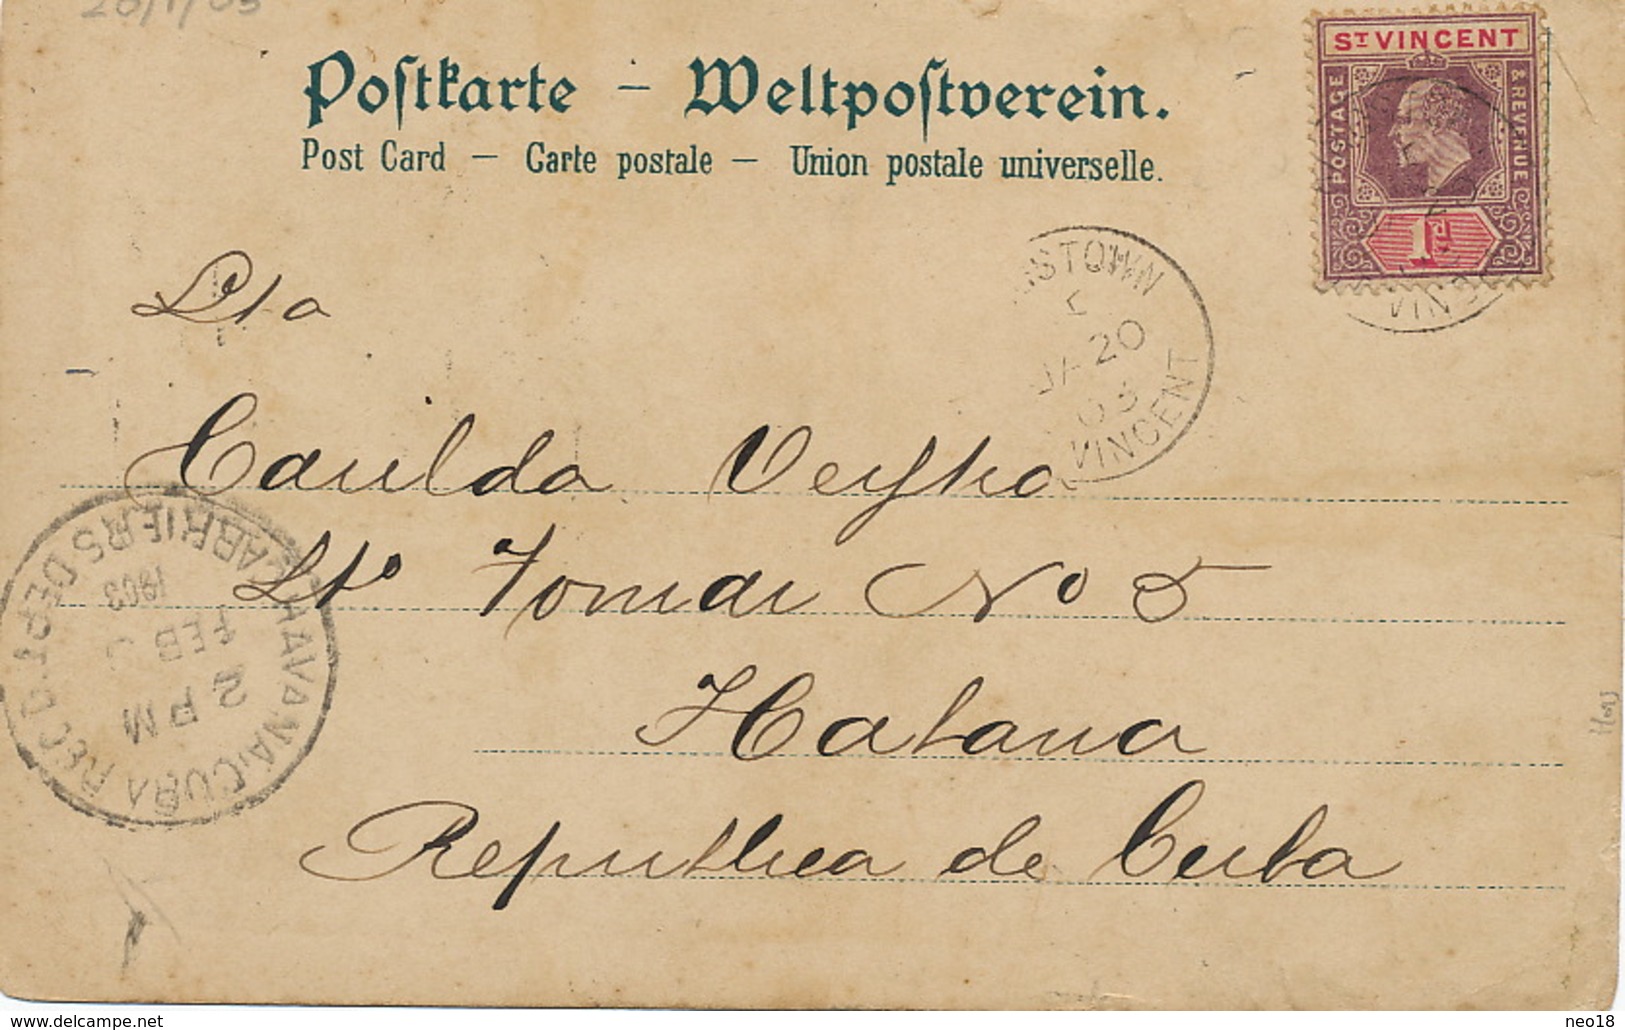 20/1/03
Postkarte – Weltpostverein.
Post Card – Carte postale – Union postale universelle.
ST VINCENT
POSTAGE & REVENUE
1d
VINCENT
STOWN
JA 20
03
VINCENT
Sta
Casilda
Sto Tomas No 5
Habana
Republica de Cuba
HAVANA, CUBA REC'D.
CARRIERS DEPT.
1903
FEB
2 PM
delcampe.net
neo18